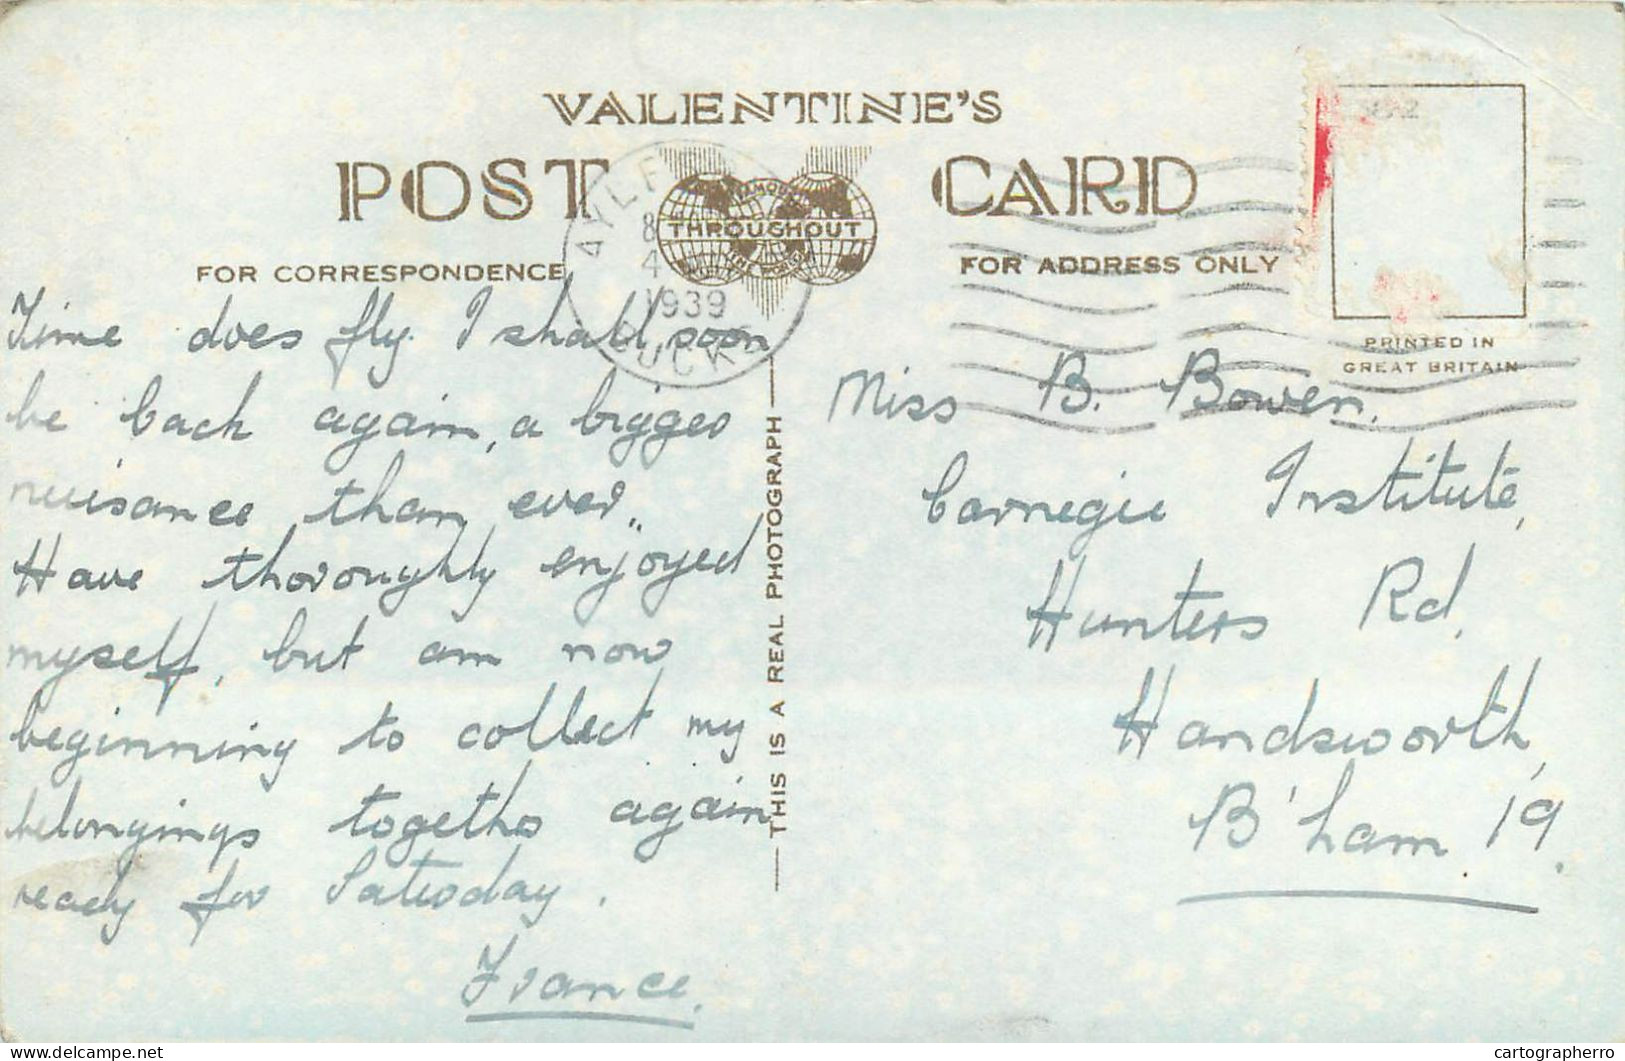 VALENTINE'S
POST CARD
FAMOUS
THROUGHOUT
THE WORLD
FOR CORRESPONDENCE
FOR ADDRESS ONLY
8
4
1939
BUCKS
PRINTED IN
GREAT BRITAIN
THIS IS A REAL PHOTOGRAPH
Time does fly. I shall soon
be back again, a bigger
nuisance than ever..
Have thoroughly enjoyed
myself, but am now
beginning to collect my
belongings together again
ready for Saturday.
France.
Miss B. Bowen.
Carnegie Institute,
Hunters Rd.
Handsworth,
B'ham 19.
cartographerro
delcampe.net